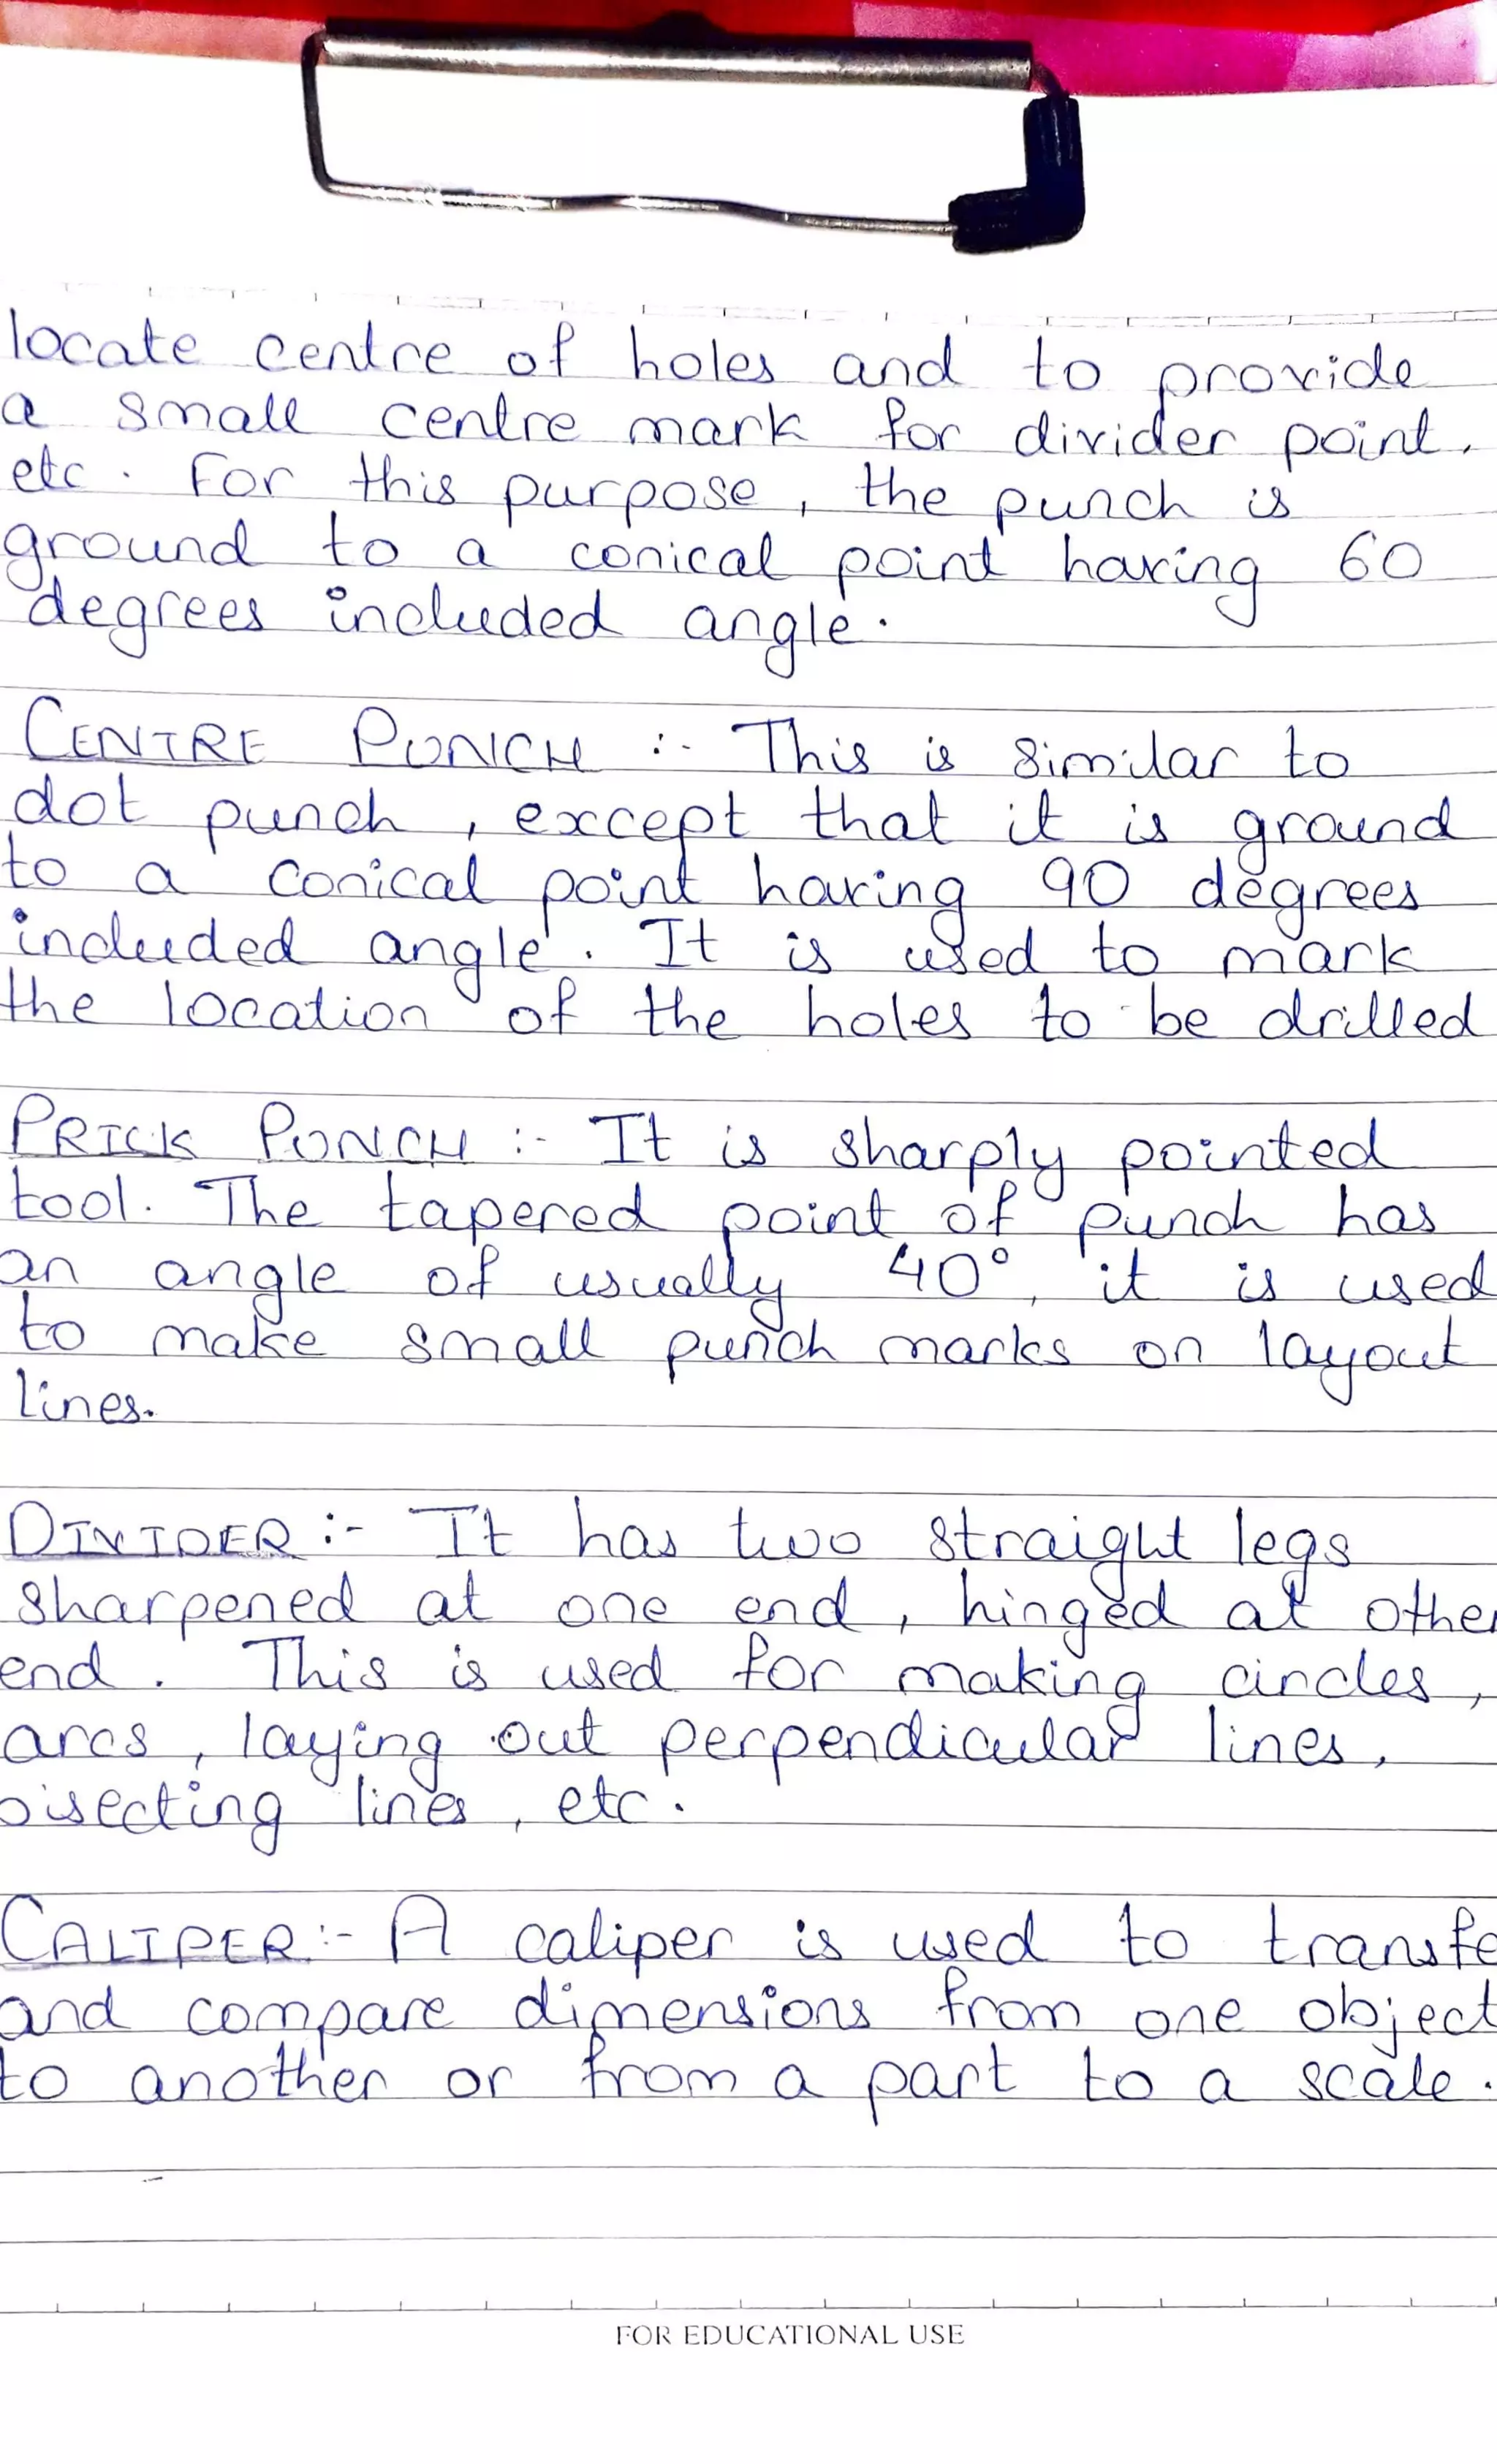 locate centre of holes and to provide
a small centre mark for divider point,
etc. For this purpose, the punch is
ground to a conical point having 60
degrees included angle.
CENTRE PUNCH :- This is similar to
dot punch, except that it is ground
to a conical point having 90 degrees
included angle. It is used to mark
the location of the holes to be drilled
PRICK PUNCH :- It is sharply pointed
tool. The tapered point of punch has
an angle of usually 40°, it is used
to make small punch marks on layout
lines.
DIVIDER :- It has two straight legs
sharpened at one end, hinged at other
end. This is used for making circles,
arcs, laying out perpendicular lines,
bisecting lines, etc.
CALIPER :- A caliper is used to transfe
and compare dimensions from one object
to another or from a part to a scale.
FOR EDUCATIONAL USE